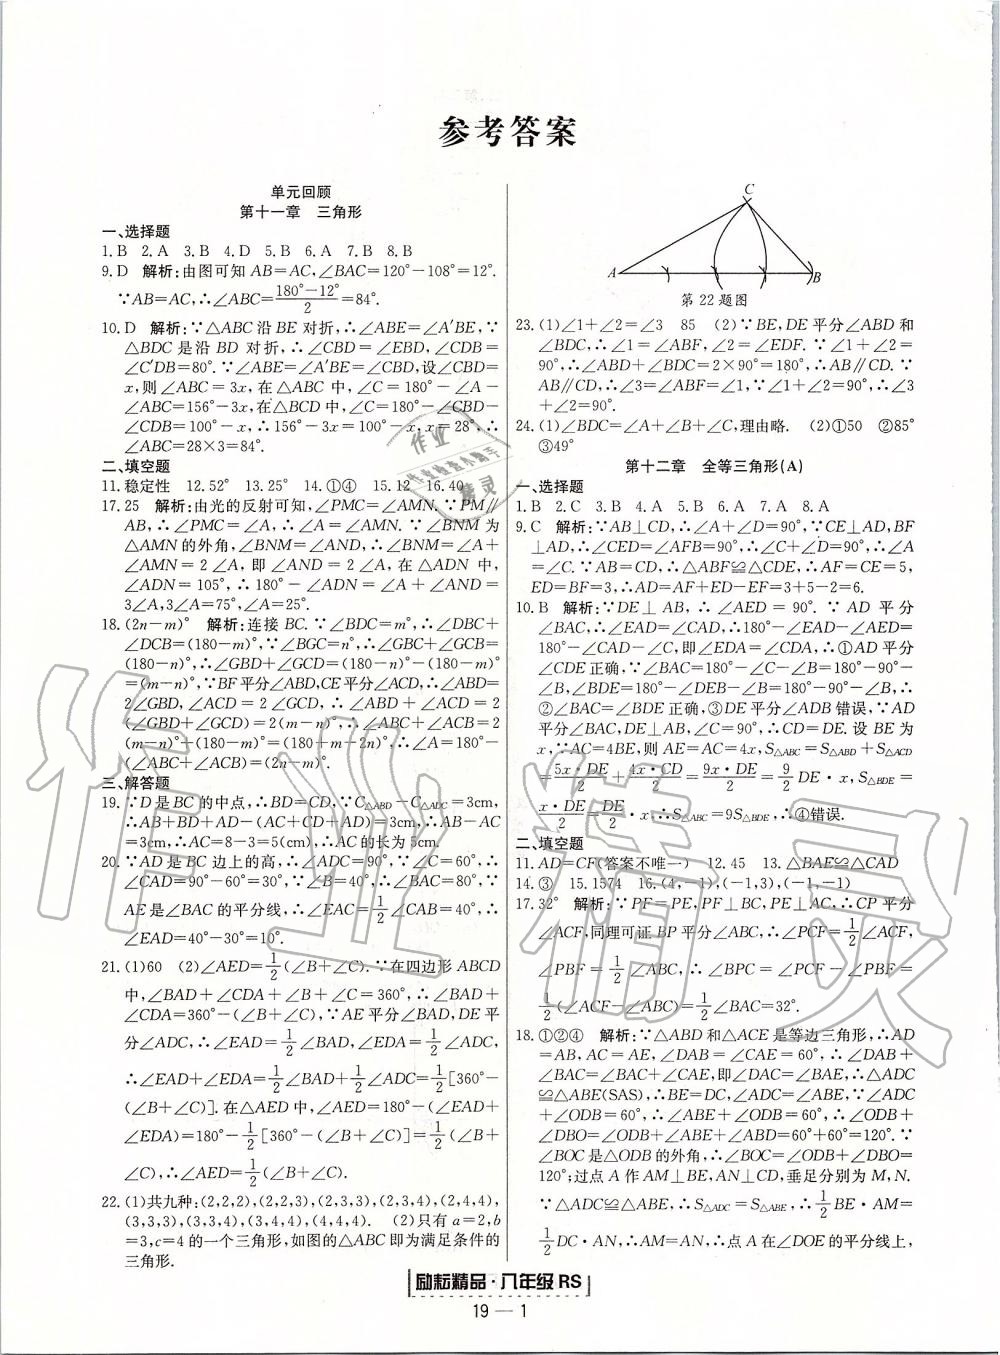 参考答案
单元回顾
第十一章 三角形
一、选择题
1.B 2.A 3.B 4.D 5.B 6.A 7.B 8.B
9.D 解析:由图可知 AB=AC,∠BAC=120°-108°=12°.
∵AB=AC,∴∠ABC=\frac{180°-12°}{2}=84°.
10.D 解析:∵△ABC 沿 BE 对折,∴∠ABE=∠A′BE,∵
△BDC 是沿 BD 对折,∴∠CBD=∠EBD,∠CDB=
∠C′DB=80°.∵∠ABE=∠A′BE=∠CBD,设∠CBD=
x,则∠ABC=3x,在△ABC 中,∠C=180°-∠A-
∠ABC=156°-3x,在△BCD 中,∠C=180°-∠CBD-
∠CDB=100°-x,∴156°-3x=100°-x,x=28°,∴
∠ABC=28×3=84°.
二、填空题
11.稳定性 12.52° 13.25° 14.①④ 15.12 16.40
17.25 解析:由光的反射可知,∠PMC=∠AMN.∵PM∥
AB,∴∠PMC=∠A,∴∠A=∠AMN.∵∠BNM 为
△AMN 的外角,∠BNM=∠AND,∴∠BNM=∠A+
∠AMN=2∠A,即∠AND=2∠A,在△ADN 中,
∠ADN=105°,∴180°-∠ADN=∠A+∠AND=
3∠A,3∠A=75°,∠A=25°.
18.(2n-m)° 解析:连接 BC.∵∠BDC=m°,∴∠DBC+
∠DCB=(180-m)°,∵∠BGC=n°,∴∠GBC+∠GCB=
(180-n)°,∴∠GBD+∠GCD=(180-n)°-(180-m)°
=(m-n)°,∵BF 平分∠ABD,CE 平分∠ACD,∴∠ABD=
2∠GBD,∠ACD=2∠GCD,∴∠ABD+∠ACD=2
(∠GBD+∠GCD)=2(m-n)°,∴∠ABC+∠ACB=2
(m-n)°+(180-m)°=(180+m-2n)°,∴∠A=180°-
(∠ABC+∠ACB)=(2n-m)°.
三、解答题
19.∵D 是 BC 的中点,∴BD=CD,∵C△ABD-C△ADC=3cm,
∴AB+BD+AD-(AC+CD+AD)=3cm,∴AB-AC
=3cm,∴AC=8-3=5(cm),∴AC 的长为 5cm.
20.∵AD 是 BC 边上的高,∴∠ADC=90°.∵∠C=60°,∴
∠CAD=90°-60°=30°,∵∠B=40°,∴∠BAC=80°,∵
AE 是∠BAC 的平分线,∴∠EAC=\frac{1}{2}∠CAB=40°,∴
∠EAD=40°-30°=10°.
21.(1)60 (2)∠AED=\frac{1}{2}(∠B+∠C).∵在四边形 ABCD
中,∠BAD+∠CDA+∠B+∠C=360°,∴∠BAD+
∠CDA=360°-(∠B+∠C),∵AE 平分∠BAD,DE 平
分∠ADC,∴∠EAD=\frac{1}{2}∠BAD,∠EDA=\frac{1}{2}∠ADC,
∴∠EAD+∠EDA=\frac{1}{2}∠BAD+\frac{1}{2}∠ADC=\frac{1}{2}[360°-
(∠B+∠C)].在△AED 中,∠AED=180°-(∠EAD+
∠EDA)=180°-\frac{1}{2}[360°-(∠B+∠C)]=\frac{1}{2}(∠B+
∠C),∴∠AED=\frac{1}{2}(∠B+∠C).
22.(1)共九种:(2,2,2),(2,2,3),(2,3,3),(2,3,4),(2,4,4),
(3,3,3),(3,3,4),(3,4,4),(4,4,4). (2)只有 a=2,b
=3,c=4 的一个三角形,如图的△ABC 即为满足条件的
三角形.
C
A
B
第 22 题图
23.(1)∠1+∠2=∠3 85 (2)∵BE,DE 平分∠ABD 和
∠BDC,∴∠1=∠ABF,∠2=∠EDF.∵∠1+∠2=
90°,∴∠ABD+∠BDC=2×90°=180°,∴AB∥CD.∵
AB∥CD,∴∠3=∠ABF=∠1,∵∠1+∠2=90°,∴∠3
+∠2=90°.
24.(1)∠BDC=∠A+∠B+∠C,理由略. (2)①50 ②85°
③49°
第十二章 全等三角形(A)
一、选择题
1.B 2.C 3.B 4.A 5.B 6.A 7.B 8.A
9.C 解析:∵AB⊥CD,∴∠A+∠D=90°,∵CE⊥AD,BF
⊥AD,∴∠CED=∠AFB=90°,∴∠C+∠D=90°,∴∠A
=∠C.∵AB=CD,∴△ABF≌△CDE,∴AF=CE=5,
ED=BF=3,∴AD=AF+ED-EF=3+5-2=6.
10.B 解析:∵DE⊥AB,∴∠AED=90°.∵AD 平分
∠BAC,∴∠EAD=∠CAD,∴180°-∠EAD-∠AED=
180°-∠CAD-∠C,即∠EDA=∠CDA,∴①AD 平分
∠CDE 正确,∵∠BAC=180°-∠C-∠B=180°-90°-
∠B,∠BDE=180°-∠DEB-∠B=180°-90°-∠B,∴
②∠BAC=∠BDE 正确,③DE 平分∠ADB 错误,∵AD
平分∠BAC,DE⊥AB,∠C=90°,∴CD=DE.设 BE 为
x,∵AC=4BE,则 AE=AC=4x,S△ABC=S△ABD+S△ACD
=\frac{5x·DE}{2}+\frac{4x·CD}{2}=\frac{9x·DE}{2}=\frac{9}{2}DE·x,S△BDE=
\frac{x·DE}{2}=\frac{DE}{2}·x,∴S△ABC=9S△BDE,∴④错误.
二、填空题
11.AD=CF(答案不唯一) 12.45 13.△BAE≌△CAD
14.③ 15.1574 16.(4,-1),(-1,3),(-1,-1)
17.32° 解析:∵PF=PE,PF⊥BC,PE⊥AC,∴CP 平分
∠ACF,同理可证 BP 平分∠ABC,∴∠PCF=\frac{1}{2}∠ACF,
∠PBF=\frac{1}{2}∠ABC,∴∠BPC=∠PCF-∠PBF=
\frac{1}{2}(∠ACF-∠ABC)=\frac{1}{2}∠BAC=32°.
18.①②④ 解析:∵△ABD 和△ACE 是等边三角形,∴AD
=AB,AC=AE,∠DAB=∠CAE=60°,∴∠DAB+
∠BAC=∠BAC+∠CAE,即∠DAC=∠BAE,∴△ADC
≌△ABE(SAS),∴BE=DC,∠ADC=∠ABE,∵∠ADC
+∠ODB=60°,∴∠ABE+∠ODB=60°,∴∠ODB+
∠DBO=∠ODB+∠ABE+∠ABD=60°+60°=120°.∵
∠BOC 是△ODB 的外角,∴∠BOC=∠ODB+∠DBO=
120°;过点 A 作 AM⊥BE,AN⊥CD,垂足分别为 M,N.
∵△ADC≌△ABE,∴S△ADC=S△ABE,∴\frac{1}{2}BE·AM=
\frac{1}{2}DC·AN,∴AM=AN,∴点 A 在∠DOE 的平分线上,
励耘精品·八年级 RS
19 — 1
作业精灵
作业
精灵